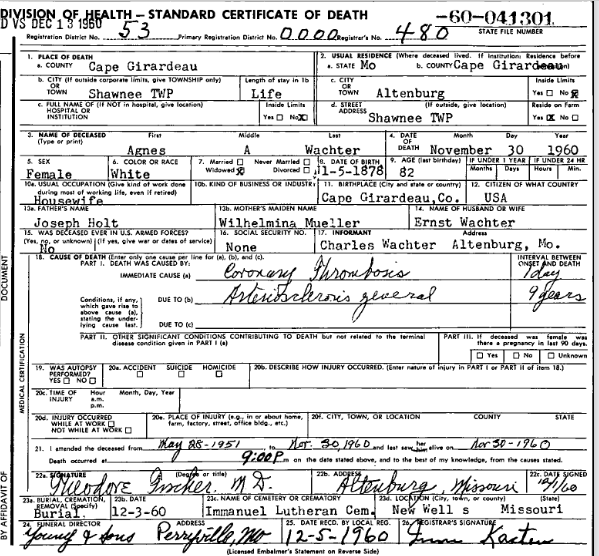 DIVISION OF HEALTH—STANDARD CERTIFICATE OF DEATH -60-041301
VS DEC 13 1960 STATE FILE NUMBER
Registration District No. 53 Primary Registration District No. 0000 Registrar's No. 480
1. PLACE OF DEATH 2. USUAL RESIDENCE (Where deceased lived. If institution: Residence before
a. COUNTY Cape Girardeau a. STATE Mo b. COUNTY Cape Girardeau
b. CITY (If outside corporate limits, give TOWNSHIP only) Length of stay in 1b c. CITY Inside Limits
OR TOWN Shawnee TWP Life OR TOWN Altenburg Yes No
c. FULL NAME OF (If NOT in hospital, give location) Inside Limits d. STREET (If outside, give location) Reside on Farm
HOSPITAL OR INSTITUTION Yes No X ADDRESS Shawnee TWP Yes X No
3. NAME OF DECEASED First Middle Last 4. DATE OF DEATH Month Day Year
(Type or print) Agnes A Wachter November 30 1960
5. SEX 6. COLOR OR RACE 7. Married Never Married 8. DATE OF BIRTH 9. AGE (last birthday) IF UNDER 1 YEAR IF UNDER 24 HR
Female White Widowed X Divorced 1-5-1878 82 Months Days Hours Min.
10a. USUAL OCCUPATION (Give kind of work done during most of working life, even if retired) 10b. KIND OF BUSINESS OR INDUSTRY 11. BIRTHPLACE (City and state or country) 12. CITIZEN OF WHAT COUNTRY
Housewife Cape Girardeau,Co. USA
13a. FATHER'S NAME 13b. MOTHER'S MAIDEN NAME 14. NAME OF HUSBAND OR WIFE
Joseph Holt Wilhelmina Mueller Ernst Wachter
15. WAS DECEASED EVER IN U.S. ARMED FORCES? 16. SOCIAL SECURITY NO. 17. INFORMANT Address
(Yes, no, or unknown) (If yes, give war or dates of service)
No None Charles Wachter Altenburg, Mo.
18. CAUSE OF DEATH (Enter only one cause per line for (a), (b), and (c). INTERVAL BETWEEN
PART I. DEATH WAS CAUSED BY: ONSET AND DEATH
IMMEDIATE CAUSE (a) Coronary Thrombosis 1 day
Conditions, if any, which gave rise to above cause (a), stating the underlying cause last. DUE TO (b) Arteriosclerosis general 9 years
DUE TO (c)
PART II. OTHER SIGNIFICANT CONDITIONS CONTRIBUTING TO DEATH but not related to the terminal disease condition given in PART I (a) PART III. If deceased was female was there a pregnancy in last 90 days.
Yes No Unknown
19. WAS AUTOPSY PERFORMED? YES NO 20a. ACCIDENT SUICIDE HOMICIDE 20b. DESCRIBE HOW INJURY OCCURRED. (Enter nature of injury in PART I or PART II of item 18.)
20c. TIME OF INJURY Hour a.m. p.m. Month, Day, Year
20d. INJURY OCCURRED WHILE AT WORK NOT WHILE AT WORK 20e. PLACE OF INJURY (e.g., in or about home, farm, factory, street, office bldg., etc.) 20f. CITY, TOWN, OR LOCATION COUNTY STATE
21. I attended the deceased from May 28-1951 to Nov. 30 1960 and last saw her alive on Nov 30-1960
Death occurred at 9:00P m on the date stated above, and to the best of my knowledge, from the causes stated.
22a. SIGNATURE (Degree or title) 22b. ADDRESS 22c. DATE SIGNED
Theodore Fischer, M D. Altenburg, Missouri 12/1/60
23a. BURIAL, CREMATION, REMOVAL (Specify) 23b. DATE 23c. NAME OF CEMETERY OR CREMATORY 23d. LOCATION (City, town, or county) (State)
Burial. 12-3-60 Immanuel Lutheran Cem. New Well s Missouri
24. FUNERAL DIRECTOR ADDRESS 25. DATE RECD. BY LOCAL REG. 26. REGISTRAR'S SIGNATURE
Young & Sons Perryville, Mo 12-5-1960
(Licensed Embalmer's Statement on Reverse Side)
DOCUMENT
MEDICAL CERTIFICATION
BY AFFIDAVIT OF